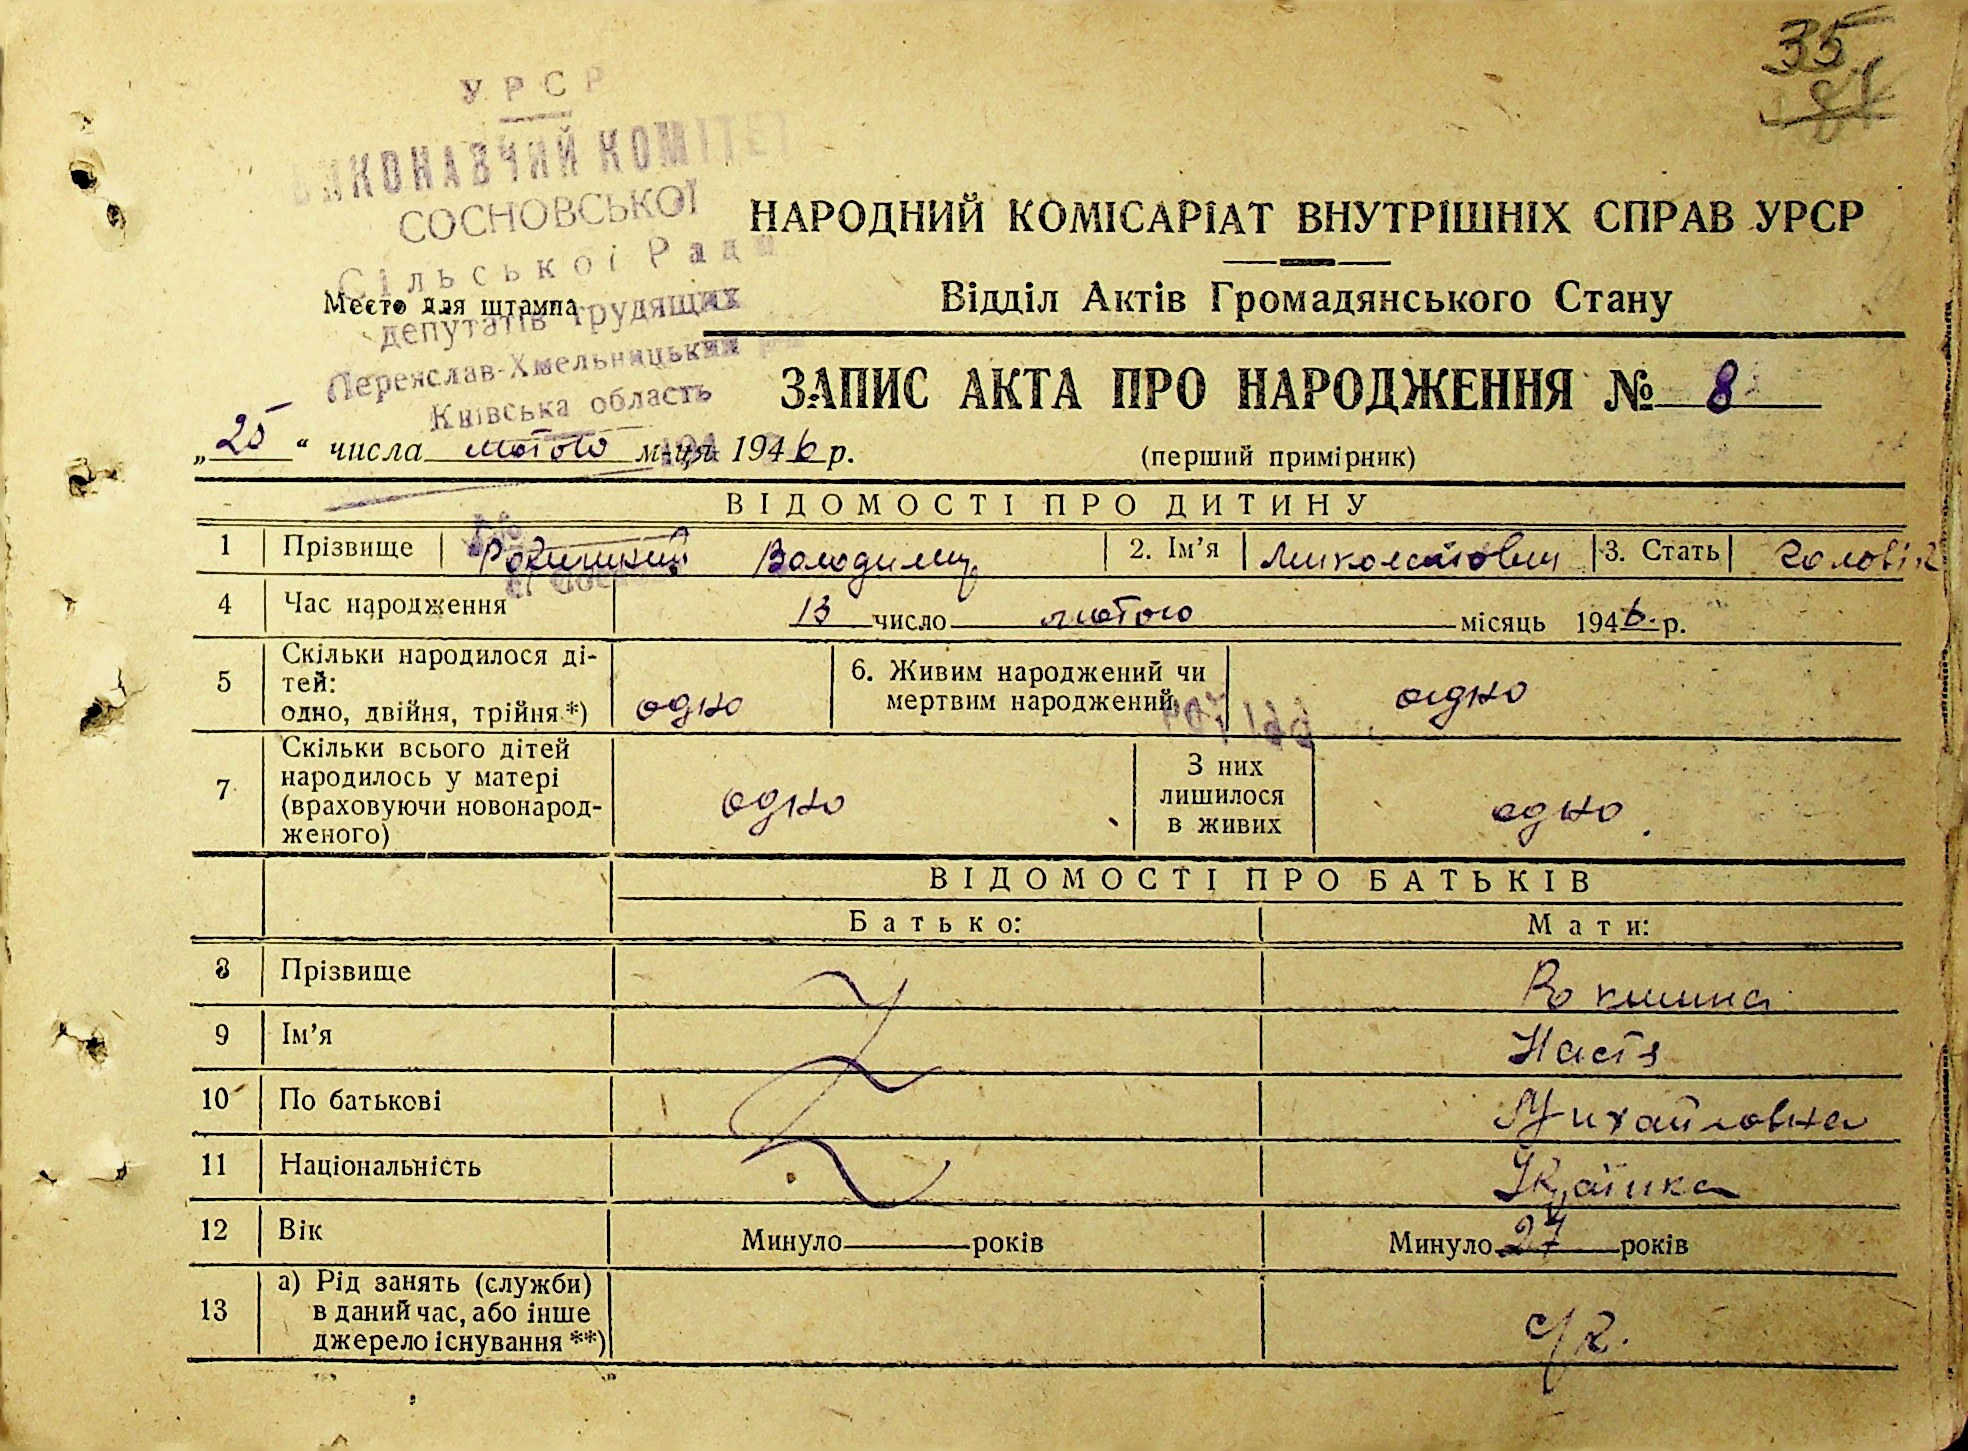 35
УРСР
ВИКОНАВЧИЙ КОМІТЕТ
СОСНОВСЬКОЇ
Сільської Ради
депутатів трудящих
Переяслав-Хмельницький
Київська область
Место для штампа
НАРОДНИЙ КОМІСАРІАТ ВНУТРІШНІХ СПРАВ УРСР
Відділ Актів Громадянського Стану
ЗАПИС АКТА ПРО НАРОДЖЕННЯ № 8
„25“ числа лютого м-ця 1946 р.
(перший примірник)
ВІДОМОСТІ ПРО ДИТИНУ
1 Прізвище Володимир 2. Ім'я Миколайович 3. Стать чоловіч
4 Час народження 13 число лютого місяць 1946 р.
5 Скільки народилося ді-
тей:
одно, двійня, трійня *) одно
6. Живим народжений чи
мертвим народжений одно
7 Скільки всього дітей
народилось у матері
(враховуючи новонарод-
женого) одно
З них
лишилося
в живих одно
ВІДОМОСТІ ПРО БАТЬКІВ
Батько: Мати:
8 Прізвище
9 Ім'я Настя
10 По батькові Михайловна
11 Національність Українка
12 Вік Минуло років Минуло 27 років
13 а) Рід занять (служби)
в даний час, або інше
джерело існування **) с/г.